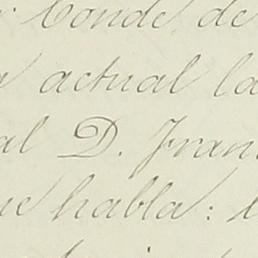 Conde de
actual la
al D. Fran
ue habla: